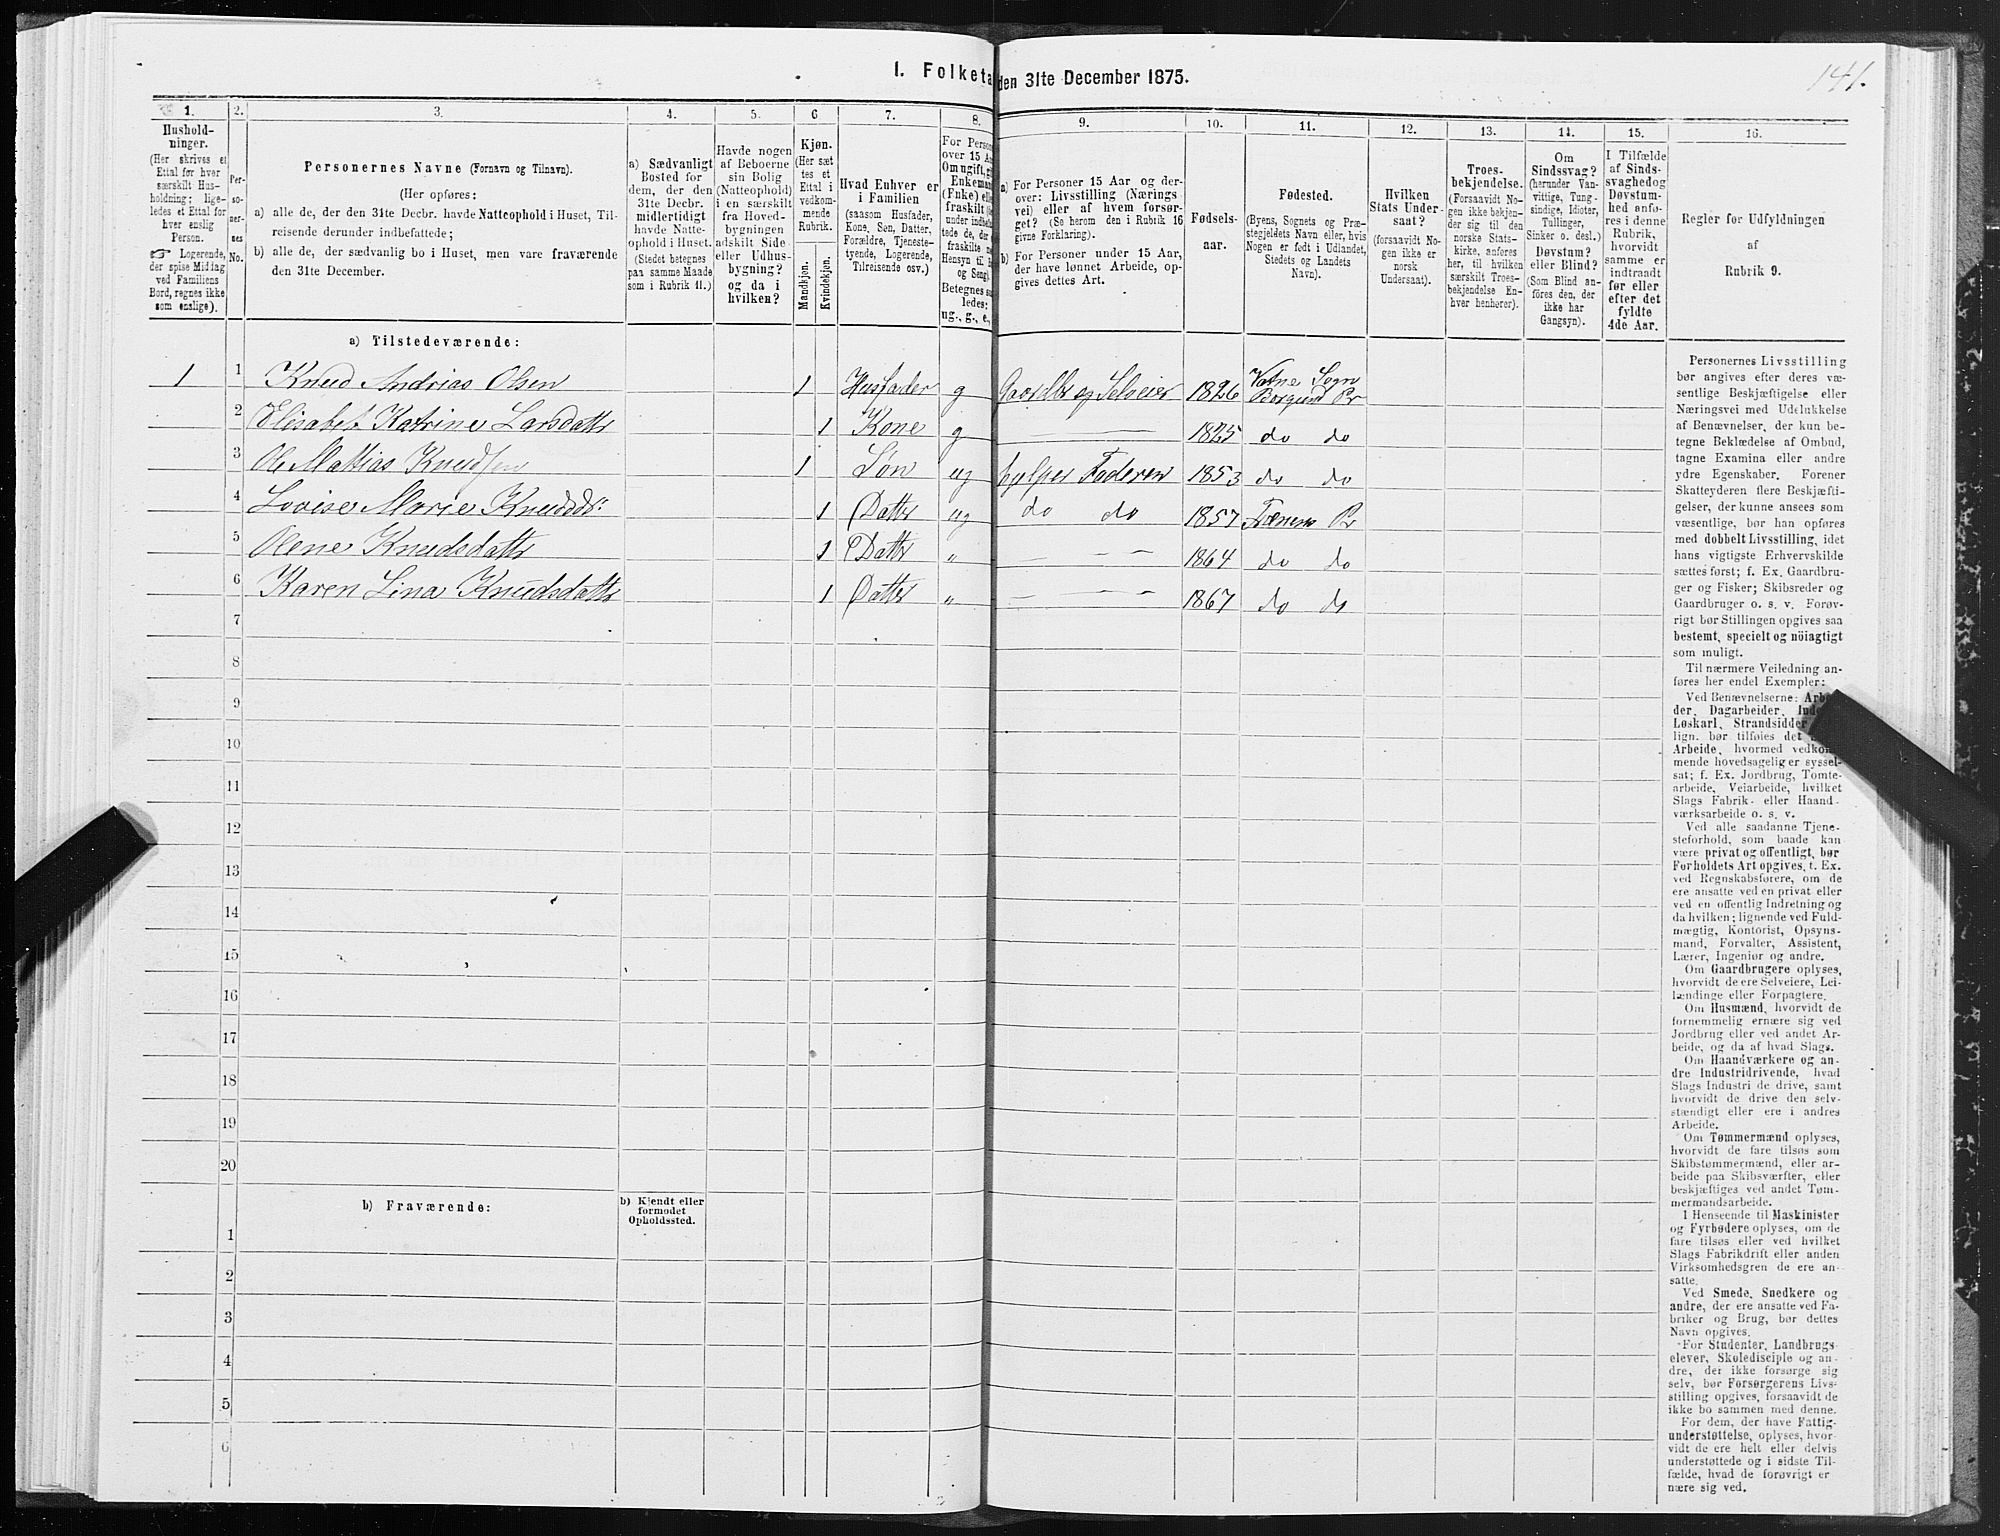 I. Folketa den 31te December 1875.
141.
1. 2. 3. 4. 5. 6 7. 8. 9. 10. 11. 12. 13. 14. 15. 16.
Hushold-
ninger.
(Her skrives et
Ettal før hver
særskilt Hus-
holdning; lige-
ledes et Ettal for
hver enslig
Person.
Logerende,
der spise Middag
ved Familiens
Bord, regnes ikke
som enslige).
Per-
so-
ner-
nes
No.
Personernes Navne (Fornavn og Tilnavn).
(Her opføres:
a) alle de, der den 31te Decbr. havde Natteophold i Huset, Til-
reisende derunder indbefattede;
b) alle de, der sædvanlig bo i Huset, men vare fraværende
den 31te December.
a) Sædvanligt
Bosted for
dem, der den
31te Decbr.
midlertidigt
havde Natte-
ophold i Huset.
(Stedet betegnes
paa samme Maade
som i Rubrik 11.)
Havde nogen
af Beboerne
sin Bolig
(Natteophold)
i en særskilt
fra Hoved-
bygningen
adskilt Side-
eller Udhus-
bygning?
og da i
hvilken?
Kjøn.
(Her sæt
tes et
Ettal i
vedkom-
mende
Rubrik.
Mandkjøn.
Kvindekjøn.
Hvad Enhver er
i Familien
(saasom Husfader,
Kone, Søn, Datter,
Forældre, Tjeneste-
tyende, Logerende,
Tilreisende osv.)
For Person
over 15 Aa
Om ugift, g
Enkeman
(Enke) elle
fraskilt (f
under indbefat
tede de, der
fraskilte
Hensyn til B
og Seng).
Betegnes sa
ledes:
ug., g., e.,
a) For Personer 15 Aar og der-
over: Livsstilling (Nærings
vei) eller af hvem forsør-
get? (Se herom den i Rubrik 16
givne Forklaring).
b) For Personer under 15 Aar,
der have lønnet Arbeide, op-
gives dettes Art.
Fødsels-
aar.
Fødested.
(Byens, Sognets og Præ-
stegjeldets Navn eller, hvis
Nogen er født i Udlandet,
Stedets og Landets
Navn).
Hvilken
Stats Under-
saat?
(forsaavidt No-
gen ikke er
norsk
Undersaat).
Troes-
bekjendelse.
(Forsaavidt No-
gen ikke bekjen-
der sig til den
norske Stats-
kirke, anføres
her, til hvilken
særskilt Troes-
bekjendelse En-
hver henhører).
Om
Sindssvag?
(herunder Van-
vittige, Tung-
sindige, Idioter,
Tullinger,
Sinker o. desl.)
Døvstum?
eller Blind?
(Som Blind an-
føres den, der
ikke har
Gangsyn).
I Tilfælde
af Sinds-
svaghedog
Døvstum-
hed anfø-
res i denne
Rubrik,
hvorvidt
samme er
indtraadt
før eller
efter det
fyldte
4de Aar.
Regler for Udfyldningen
af
Rubrik 9.
a) Tilstedeværende:
1 1 Knud Andrias Olsen 1 Husfader g Gaardbr og Selveier 1826 Vatne Sogn
Borgund Pr
2 Elisabet Katrine Larsdattr 1 Kone g — — 1825 do do
3 Ole Mattias Knudsen 1 Søn ug hjelper Faderen 1853 do do
4 Lovise Marie Knudsdr: 1 Dattr ug do do 1857 Pr
5 Olene Knudsdattr 1 Dattr " — — — 1864 do do
6 Karen Lina Knudsdattr 1 Dattr " — — — 1867 do do
7
8
9
10
11
12
13
14
15
16
17
18
19
20
b) Fraværende:
b) Kjendt eller
formodet
Opholdssted.
1
2
3
4
5
6
Personernes Livsstilling
bør angives efter deres væ-
sentlige Beskjæftigelse eller
Næringsvei med Udelukkelse
af Benævnelser, der kun be-
tegne Beklædelse af Ombud,
tagne Examina eller andre
ydre Egenskaber. Forener
Skatteyderen flere Beskjæfti-
gelser, der kunne ansees som
væsentlige, bør han opføres
med dobbelt Livsstilling, idet
hans vigtigste Erhvervskilde
sættes først; f. Ex. Gaardbru-
ger og Fisker; Skibsreder og
Gaardbruger o. s. v. Forøv-
rigt bør Stillingen opgives saa
bestemt, specielt og nöiagtigt
som muligt.
Til nærmere Veiledning an-
føres her endel Exempler:
Ved Benævnelserne: Arbe
der, Dagarbeider, Inde
Løskarl, Strandsidder
lign. bør tilføies det
Arbeide, hvormed vedkom
mende hovedsagelig er syssel-
sat; f. Ex. Jordbrug, Tomte-
arbeide, Veiarbeide, hvilket
Slags Fabrik- eller Haand-
værksarbeide o. s. v.
Ved alle saadanne Tjene-
steforhold, som baade kan
være privat og offentligt, bør
Forholdets Art opgives, f. Ex.
ved Regnskabsførere, om de
ere ansatte ved en privat eller
ved en offentlig Indretning og
da hvilken; lignende ved Fuld-
mægtig, Kontorist, Opsyns-
mand, Forvalter, Assistent,
Lærer, Ingeniør og andre.
Om Gaardbrugere oplyses,
hvorvidt de ere Selveiere, Lei-
lændinge eller Forpagtere.
Om Husmænd, hvorvidt de
fornemmelig ernære sig ved
Jordbrug eller ved andet Ar-
beide, og da af hvad Slags.
Om Haandværkere og an-
dre Industridrivende, hvad
Slags Industri de drive, samt
hvorvidt de drive den selv-
stændigt eller ere i andres
Arbeide.
Om Tømmermænd oplyses,
hvorvidt de fare tilsøs som
Skibstømmermænd, eller ar-
beide paa Skibsværfter, eller
beskjæftiges ved andet Tøm-
mermandsarbeide.
I Henseende til Maskinister
og Fyrbødere oplyses, om de
fare tilsøs eller ved hvilket
Slags Fabrikdrift eller anden
Virksomhedsgren de ere an-
satte.
Ved Smede, Snedkere og
andre, der ere ansatte ved Fa-
briker og Brug, bør dettes
Navn opgives.
For Studenter, Landbrugs-
elever, Skoledisciple og an-
dre, der ikke forsørge sig
selv, bør Forsørgerens Livs-
stilling opgives, forsaavidt de
ikke bo sammen med denne.
For dem, der have Fattig-
understøttelse, oplyses, hvor-
vidt de ere helt eller delvis
understøttede og i sidste Til-
fælde, hvad de forøvrigt er
nære sig ved.